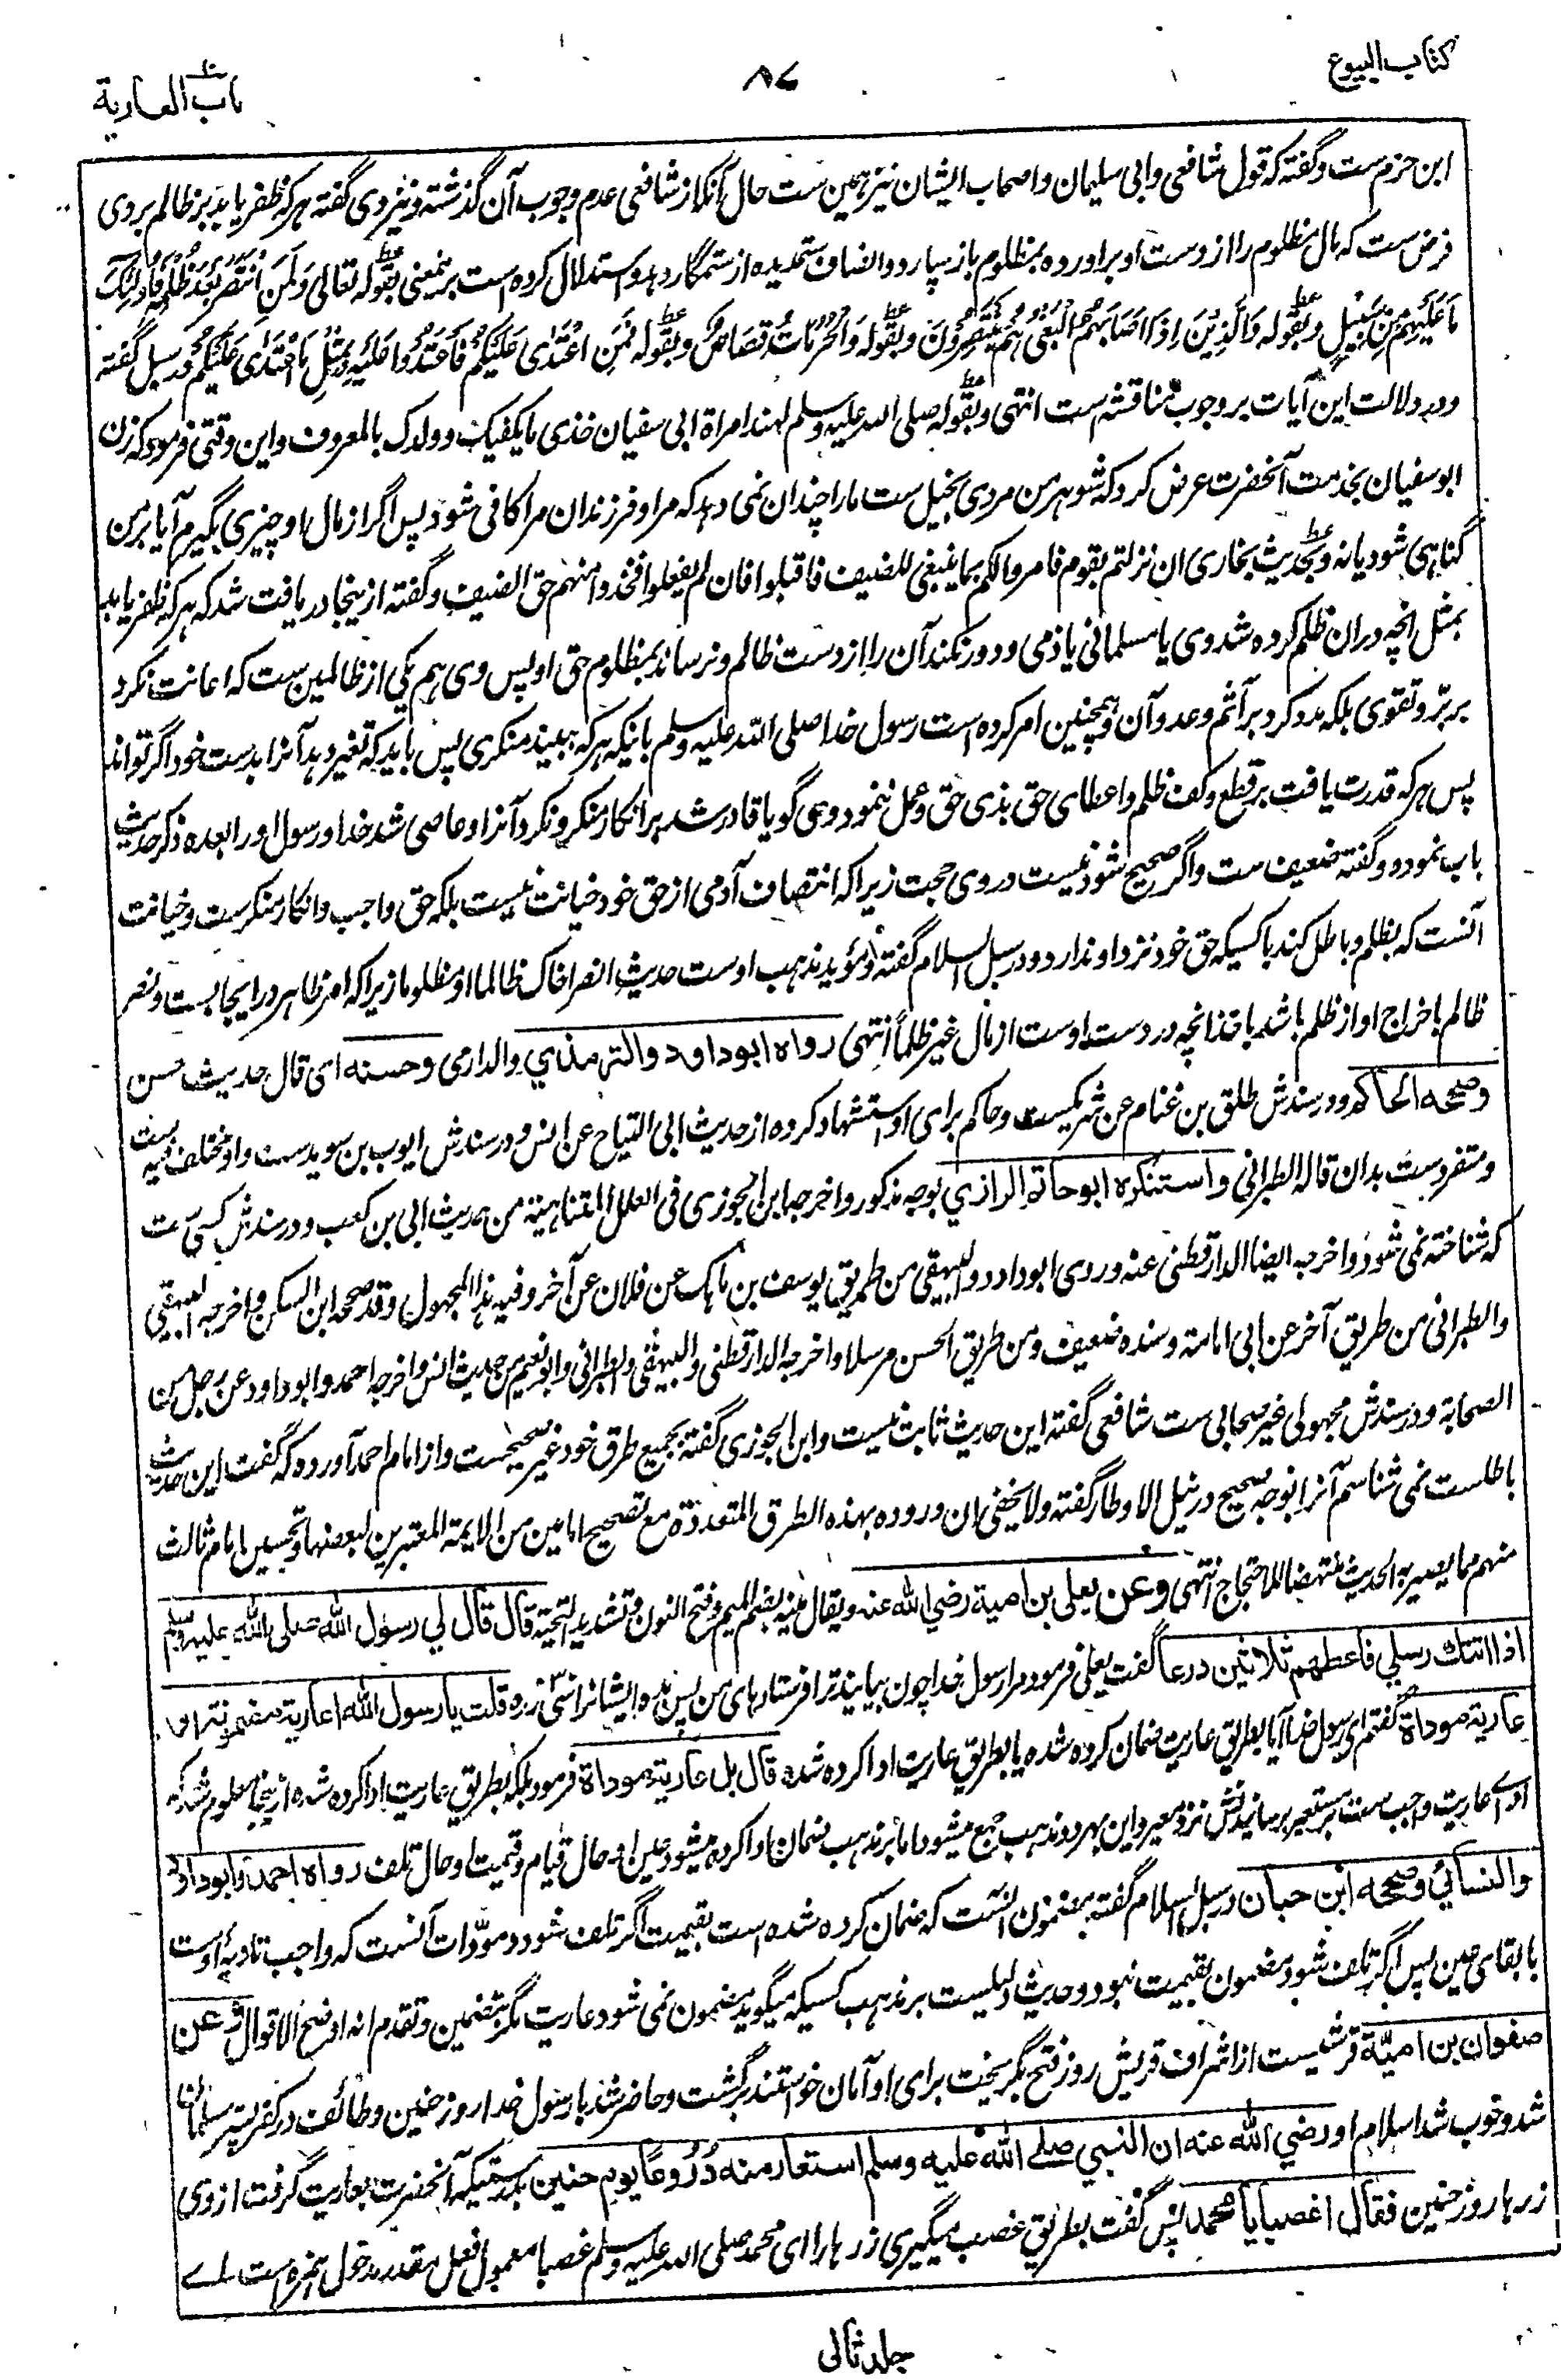 کتاب البیوع
۸۷
باب العاریة
ابن حزم ست وگفته که قول شافعی وابی سلیمان واصحاب ایشان نیز همین ست حال آنکه از شافعی عدم وجوب آن گذشته ونیز وی گفته هر که ظفر یابد بر ظالم بر وی
فرض ست که مال مظلوم را از دست او برآورده بمظلوم باز سپارد وانصاف ستمدیده از ستمگار دهد واستدلال کرده است برینمعنی بقوله تعالی وَلَمَنِ انْتَصَرَ بَعْدَ ظُلْمِهٖ فَاُولٰٓئِكَ
مَا عَلَيْهِمْ مِنْ سَبِيْلٍ وبقوله وَالَّذِيْنَ اِذَا اَصَابَهُمُ الْبَغْيُ هُمْ يَنْتَصِرُوْنَ وبقوله وَالْحُرُمَاتُ قِصَاصٌ وبقوله فَمَنِ اعْتَدٰى عَلَيْكُمْ فَاعْتَدُوْا عَلَيْهِ بِمِثْلِ مَا اعْتَدٰى عَلَيْكُمْ ودر سبل گفته
ودر دلالت این آیات بر وجوب مناقشه است انتهی وبقوله صلی الله علیه وسلم لهند امراة ابی سفیان خذی مایکفیک وولدک بالمعروف واین وقتی فرمود که زن
ابو سفیان بخدمت آنحضرت عرض کرد که شوهر من مردی بخیل ست مارا چندان نمی دهد که مرا وفرزندان مرا کافی شود پس اگر از مال او چیزی بگیرم آیا بر من
گناهی شود یا نه وبحدیث بخاری ان نزلتم بقوم فامروا لکم بما ینبغی للضیف فاقبلوا فان لم یفعلوا فخذوا منهم حق الضیف وگفته ازینجا دریافت شد که هر که ظفر یابد
بمثل انچه دران ظلم کرده شد وی یا مسلمانی یا ذمی ودور نکند آن را از دست ظالم ونرساند بمظلوم حق او پس وی هم یکی از ظالمین ست که اعانت نکرد
بر برّ وتقوی بلکه مدد کرد بر اثم وعدوان وهمچنین امر کرده است رسول خدا صلی الله علیه وسلم بانیکه هر که ببیند منکری پس باید که تغیر دهد آنرا بدست خود اگر تواند
پس هر که قدرت یافت بر قطع وکف ظلم واعطای حق بذی حق وعمل ننمود وی گویا قادر شد بر انکار منکر ونکرد آنرا وعاصی شد خدا ورسول او را بعده ذکر حدیث
باب نموده وگفته ضعیف ست واگر صحیح شود نیست در وی حجت زیرا که انتصاف آدمی از حق خود خیانت نیست بلکه حق واجب وانکار منکرست وخیانت
آنست که بظلم وباطل کند با کسیکه حق خود نزد او ندارد ودر سبل السلام گفته ومؤید مذهب اوست حدیث انصر اخاک ظالما او مظلوما زیرا که امر ظاهر در ایجابست ونصر
ظالم باخراج او از ظلم باشد باخذ انچه در دست اوست از مال غیر ظلماً انتهی رواه ابوداود والترمذي والدارمی وحسنه ای قال حدیث حسن
وصححه الحاکم ودر سندش طلق بن غنام عن شریکست وحاکم برای او استشهاد کرده از حدیث ابی التیاح عن انس ودر سندش ایوب بن سویدست واو مختلف فیه ست
ومتفردست بدان قاله الطبرانی واستنکره ابوحاتم الرازي بوجه مذکور واخرجه ابن الجوزی فی العلل المتناهیة من حدیث ابی بن کعب ودر سندش کسی ست
که شناخته نمی شود واخرجه ایضا الدارقطنی عنه وروی ابوداود والبیهقی من طریق یوسف بن ماهک عن فلان عن آخر وفیه هذا المجهول وقد صححه ابن السکن واخرجه البیهقی
والطبرانی من طریق آخر عن ابی امامة وسنده ضعیف ومن طریق الحسن مرسلا واخرجه الدارقطنی والبیهقی والطبرانی وابونعیم من حدیث انس واخرجه احمد وابوداود عن رجل من
الصحابة ودر سندش مجهولی غیر صحابی ست شافعی گفته این حدیث ثابت نیست وابن الجوزی گفته بجمیع طرق خود غیر صحیحست واز امام احمد آورده که گفت این حدیث
باطلست نمی شناسم آنرا بوجه صحیح در نیل الاوطار گفته ولا یخفی ان وروده بهذه الطرق المتعددة مع تصحیح امامین من الایمة المعتبرین لبعضها وتحسین امام ثالث
منهم مما یصیر به الحدیث منتهضا للاحتجاج انتهی وعن یعلی بن امیة رضي الله عنه ویقال منیه بضم المیم وفتح النون وتشدید التحتیة قال قال لي رسول الله صلی الله علیه وسلم
اذا اتتك رسلي فاعطهم ثلاثین درعا گفت یعلی فرمود مرا رسول خدا چون بیایند ترا فرستادهای من پس بده ایشانرا سی زره قلت یا رسول الله اعاریة مضمونة ام
عاریة موداة گفتم ای رسول خدا آیا بطریق عاریت ضمان کرده شده یا بطریق عاریت ادا کرده شده قال بل عاریة موداة فرمود بلکه بطریق عاریت ادا کرده شده ازینجا معلوم شد که
ادای عاریت واجب ست بر مستعیر برسانیدنش نزد معیر واین بهر دو مذهب جمع میشود اما بر مذهب ضمان ادا کرده میشود عین او حال قیام وقیمت او حال تلف رواه احمد وابوداود
والنسائي وصححه ابن حبان در سبل السلام گفته مضمون آنست که ضمان کرده شده است بقیمت اگر تلف شود ومؤدّات آنست که واجب تادیهٔ اوست
با بقای عین پس اگر تلف شود مضمون بقیمت نبود وحدیث دلیلست بر مذهب کسیکه میگوید مضمون نمی شود عاریت مگر بتضمین وتقدم انه اوضح الاقوال وعن
صفوان بن امیّة قرشیست از اشراف قریش روز فتح بگریخت برای او امان خواستند برگشت وحاضر شد با رسول خدا روز حنین وطائف در کفر پستر مسلمان
شد وخوب شد اسلام او رضي الله عنه ان النبي صلے الله علیه وسلم استعار منه دُرُوعًا یوم حنین بدرستیکه آنحضرت بعاریت گرفت از وی
زرها روز حنین فقال اغصبا یا محمد پس گفت بطریق غصب میگیری زرها را ای محمد صلی الله علیه وسلم غصبا معمول فعل مقدر مدخول همزه است اے
جلد ثانی